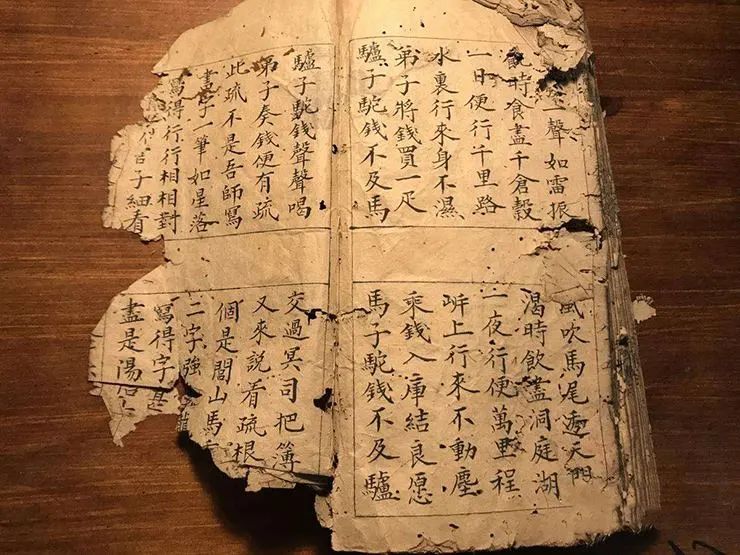 一聲如雷振
風吹馬尾透天門
時食盡千倉穀
渴時飲盡洞庭湖
一日便行千里路
一夜行便萬里程
水裏行來身不濕
岸上行來不動塵
弟子將錢買一疋
乘錢入庫結良愿
驢子駝錢不及馬
馬子駝錢不及驢
驢子駝錢聲聲喝
交過冥司把簿
弟子奏錢便有疏
又來說看疏根
此疏不是吾師寫
個是閭山馬
字一筆如星落
二字強
寫得行行相相對
寫得字
子細看
盡是湯